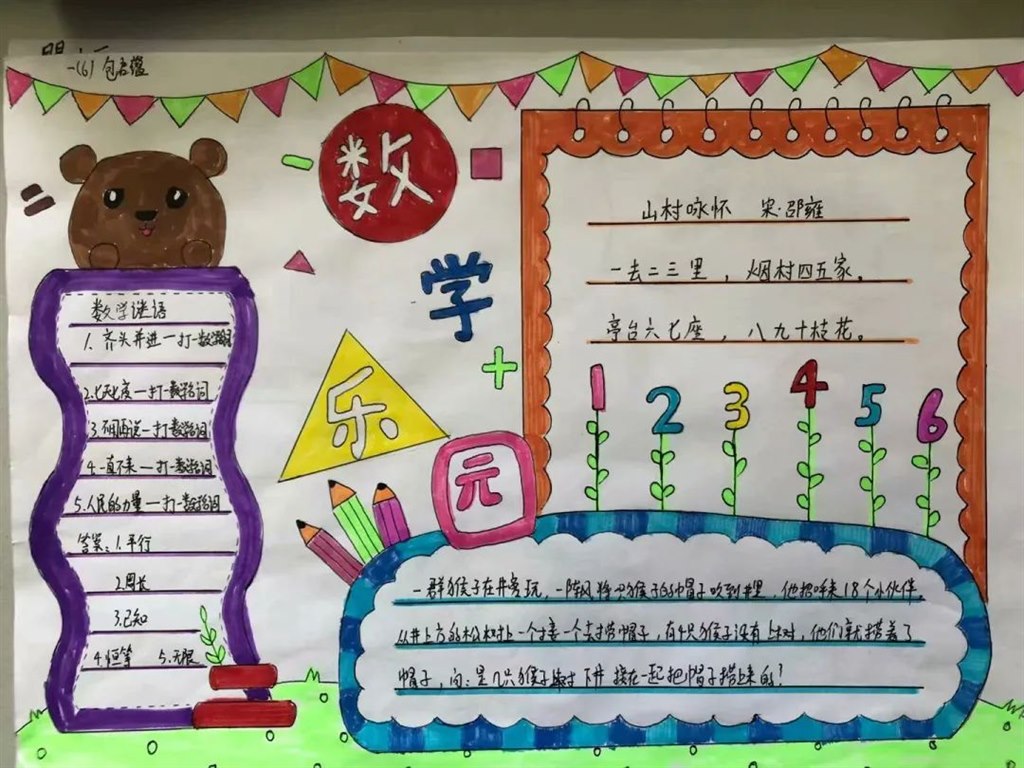 一(6) 包启蕴
数学乐元
数学谜语
1. 齐头并进一打一数学词
2.七天七夜一打一数学词
3.不用再说一打一数学词
4.一直不来一打一数学词
5.人民的力量一打一数学词
答案:1.平行
2.周长
3.已知
4.恒等 5.无限
山村咏怀 宋·邵雍
一去二三里，烟村四五家。
亭台六七座，八九十枝花。
1 2 3 4 5 6
一群猴子在井旁玩，一阵风将小猴子的帽子吹到井里，他招呼来18个小伙伴，
从井上方的松树上一个接一个去捞帽子，有4只猴子没有上树，他们就捞着了
帽子，问：是几只猴子下井接在一起把帽子捞上来的！